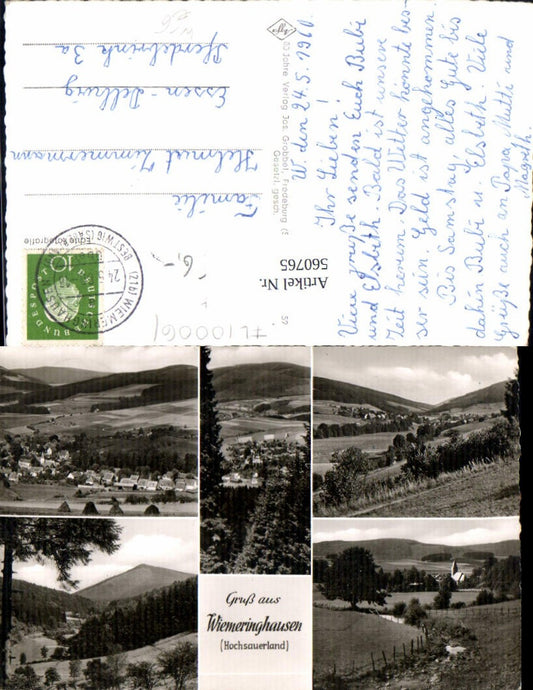 W. den 24.5.1960.
Ihr Lieben!
Viele Grüße senden Euch Bubi
und Elsbith. Bald ist unsere
Zeit herum. Das Wetter könnte bes-
ser sein. Geld ist angekommen
Bis Samstag, alles Gute bis
dahin Bubi u. Elsbith. Viele
Grüße auch an Papa, Mutti und
Magreth.
Familie
Helmut Zimmermann
Essen-Dellwig
Pferdebrink 3a
Agfa
60 Jahre Verlag Jos. Grobbel, Fredeburg
Gesetzl. gesch.
Echte Fotografie
10
DEUTSCHE
BUNDESPOST
(21b) WIEMERINGHAUSEN
BESTWIG (SAUERL)
24.5.
6,-
Artikel Nr.
560765
52
Gruß aus
Wiemeringhausen
(Hochsauerland)